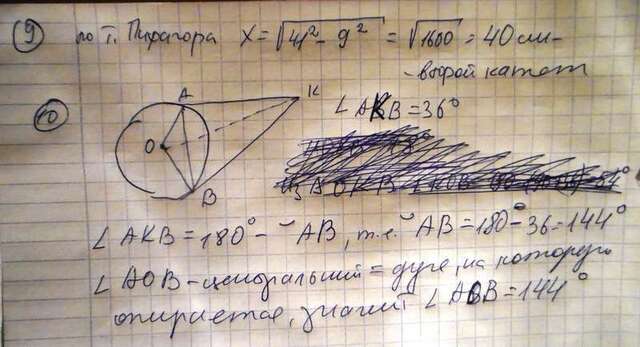 9 по т. Пифагора X = √41² - 9² = √1600 = 40 см -
- второй катет
10 A K
O B
∠AKB = 36°
∠AKB = 180° - ◡AB, т.е. ◡AB = 180° - 36 = 144°
∠AOB - центральный = дуге, на которую
опирается, значит ∠AOB = 144°